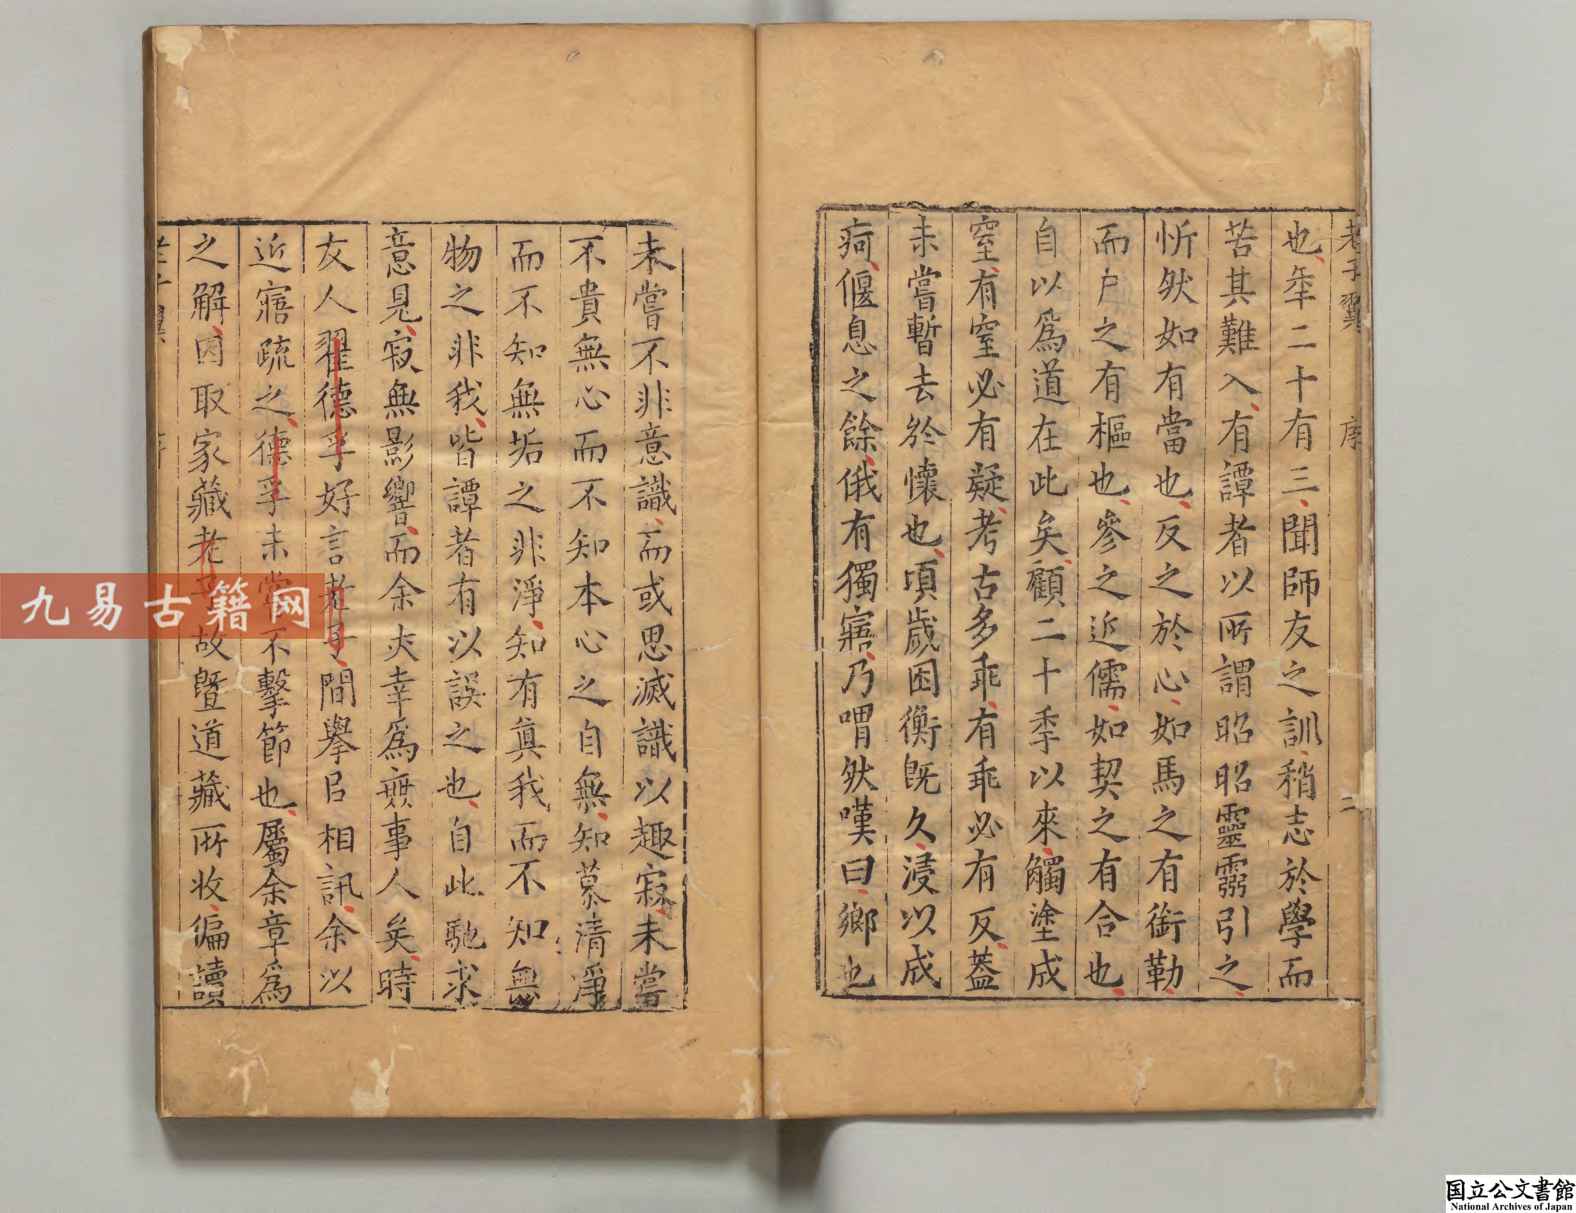 老子翼 序 二
也年二十有三聞師友之訓稍志於學而
苦其難入有譚者以所謂昭昭靈靈引之
忻然如有當也反之於心如馬之有銜勒
而戶之有樞也參之近儒如契之有合也
自以爲道在此矣顧二十季以來觸塗成
窒有窒必有疑考古多乖有乖必有反蓋
未嘗暫去於懷也頃歲困衡旣久浸以成
痾偃息之餘俄有獨寤乃喟然嘆曰鄉也
未嘗不非意識而或思滅識以趣寂未嘗
不貴無心而不知本心之自無知慕清淨
而不知無垢之非淨知有眞我而不知無
物之非我皆譚者有以誤之也自此馳求
意見寂無影響而余亦幸爲無事人矣時
友人翟德孚好言老子間舉㠯相訊余以
近寤疏之德孚未嘗不擊節也屬余章爲
之解因取家藏老子故曁道藏所收徧讀
九易古籍网
国立公文書館
National Archives of Japan